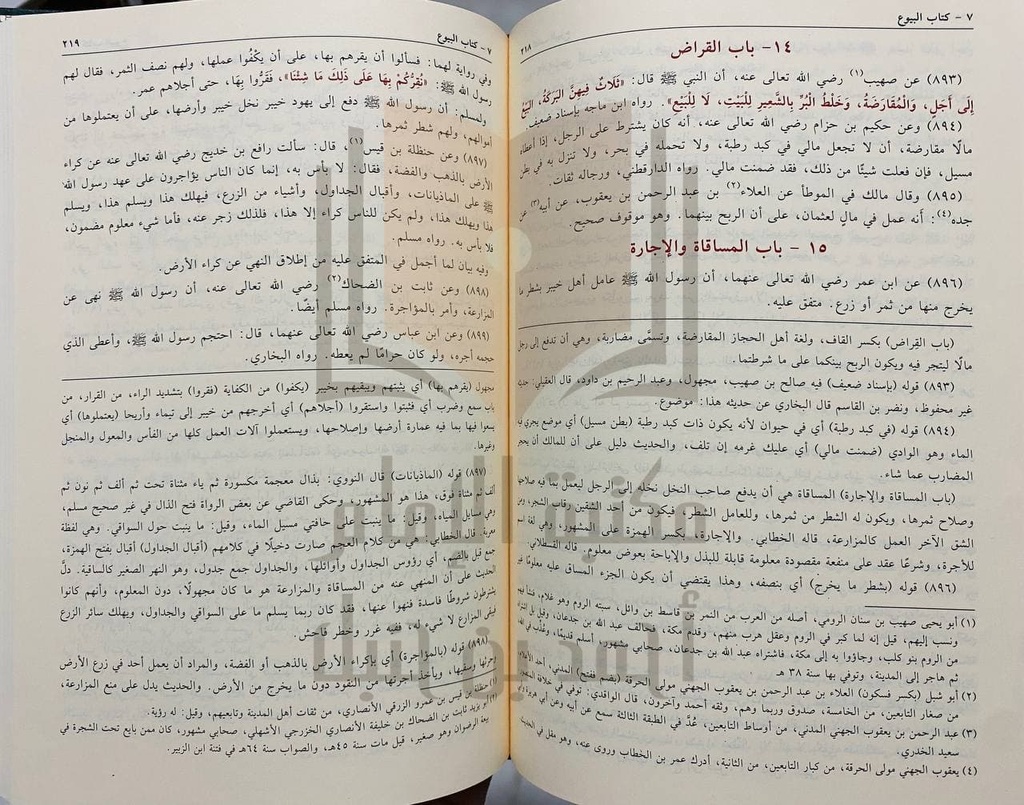 ٧ - كتاب البيوع
٢١٨
١٤- باب القراض
(٨٩٣) عن صهيب(١) رضي الله تعالى عنه، أن النبي ﷺ قال: «ثَلَاثٌ فِيهِنَّ البَرَكَةُ، البَيْعُ
إِلَى أَجَلٍ، وَالْمُقَارَضَةُ، وَخَلْطُ الْبُرِّ بِالشَّعِيرِ لِلْبَيْتِ، لَا لِلْبَيْعِ». رواه ابن ماجه بإسناد ضعيف.
(٨٩٤) وعن حكيم بن حزام رضي الله تعالى عنه، أنه كان يشترط على الرجل، إذا أعطاه
مالًا مقارضة، أن لا تجعل مالي في كبد رطبة، ولا تحمله في بحر، ولا تنزل به في بطن
مسيل، فإن فعلت شيئًا من ذلك، فقد ضمنت مالي. رواه الدارقطني، ورجاله ثقات.
(٨٩٥) وقال مالك في الموطأ عن العلاء(٢) بن عبد الرحمن بن يعقوب، عن أبيه(٣) عن
جده(٤): أنه عمل في مالٍ لعثمان، على أن الربح بينهما. وهو موقوف صحيح.
١٥ - باب المساقاة والإجارة
(٨٩٦) عن ابن عمر رضي الله تعالى عنهما، أن رسول الله ﷺ عامل أهل خيبر بشطر ما
يخرج منها من ثمر أو زرع. متفق عليه.
(باب القِراض) بكسر القاف، ولغة أهل الحجاز المقارضة، وتسمَّى مضاربة، وهي أن تدفع إلى رجل
مالًا ليتجر فيه ويكون الربح بينكما على ما شرطتما.
(٨٩٣) قوله (بإسناد ضعيف) فيه صالح بن صهيب، مجهول، وعبد الرحيم بن داود، قال العقيلي: حديثه
غير محفوظ، ونصر بن القاسم قال البخاري عن حديثه هذا: موضوع.
(٨٩٤) قوله (في كبد رطبة) أي في حيوان لأنه يكون ذات كبد رطبة (بطن مسيل) أي موضع يجري فيه
الماء وهو الوادي (ضمنت مالي) أي عليك غرمه إن تلف، والحديث دليل على أن للمالك أن يحجر
المضارب عما شاء.
(باب المساقاة والإجارة) المساقاة هي أن يدفع صاحب النخل نخله إلى الرجل ليعمل بما فيه صلاحها
وصلاح ثمرها، ويكون له الشطر من ثمرها، وللعامل الشطر، فيكون من أحد الشقين رقاب الشجر، ومن
الشق الآخر العمل كالمزارعة، قاله الخطابي. والإجارة، بكسر الهمزة على المشهور، وهي لغة اسم
للأجرة، وشرعًا عقد على منفعة مقصودة معلومة قابلة للبذل والإباحة بعوض معلوم. قاله القسطلاني.
(٨٩٦) قوله (بشطر ما يخرج) أي بنصفه، وهذا يقتضي أن يكون الجزء المساق عليه معلومًا
(١) أبو يحيى صهيب بن سنان الرومي، أصله من العرب من النمر بن قاسط بن وائل، سبته الروم وهو غلام، فنشأ
ونسب إليهم، قيل إنه لما كبر في الروم وعقل هرب منهم، وقدم مكة، فحالف عبد الله بن جدعان، وقيل بل
من الروم بنو كلب، وجاؤوا به إلى مكة، فاشتراه عبد الله بن جدعان، صحابي مشهور، أسلم قديمًا، وعُذّب في
ثم هاجر إلى المدينة، وتوفي بها سنة ٣٨ هـ.
(٢) أبو شبل (بكسر فسكون) العلاء بن عبد الرحمن بن يعقوب الجهني مولى الحرقة (بضم ففتح) المدني، أحد
من صغار التابعين، من الخامسة، صدوق وربما وهم، وثقه أحمد وآخرون، قال الواقدي: توفي في خلافة
(٣) عبد الرحمن بن يعقوب الجهني المدني، من أوساط التابعين، عُدَّ في الطبقة الثالثة سمع عن أبيه وعن أبي هريرة
سعيد الخدري.
(٤) يعقوب الجهني مولى الحرقة، من كبار التابعين، من الثانية، أدرك عمر بن الخطاب وروى عنه، وهو مقل في الحديث
٧ - كتاب البيوع
٢١٩
وفي رواية لهما: فسألوا أن يقرهم بها، على أن يَكْفُوا عملها، ولهم نصف الثمر، فقال لهم
رسول الله ﷺ: «نُقِرُّكُمْ بِهَا عَلَى ذَلِكَ مَا شِئْنَا»، فَقَرُّوا بِهَا، حتى أجلاهم عمر.
ولمسلم: أن رسول الله ﷺ دفع إلى يهود خيبر نخل خيبر وأرضها، على أن يعتملوها من
أموالهم، ولهم شطر ثمرها.
(٨٩٧) وعن حنظلة بن قيس(١)، قال: سألت رافع بن خديج رضي الله تعالى عنه عن كراء
الأرض بالذهب والفضة، فقال: لا بأس به، إنما كان الناس يؤاجرون على عهد رسول الله
ﷺ على الماذيانات، وأقبال الجداول، وأشياء من الزرع، فيهلك هذا ويسلم هذا، ويسلم
هذا ويهلك هذا، ولم يكن للناس كراء إلا هذا، فلذلك زجر عنه، فأما شيء معلوم مضمون،
فلا بأس به. رواه مسلم.
وفيه بيان لما أجمل في المتفق عليه من إطلاق النهي عن كراء الأرض.
(٨٩٨) وعن ثابت بن الضحاك(٢) رضي الله تعالى عنه، أن رسول الله ﷺ نهى عن
المزارعة، وأمر بالمؤاجرة. رواه مسلم أيضًا.
(٨٩٩) وعن ابن عباس رضي الله تعالى عنهما، قال: احتجم رسول الله ﷺ، وأعطى الذي
حجمه أجره، ولو كان حرامًا لم يعطه. رواه البخاري.
مجهول (يقرهم بها) أي يثبتهم ويبقيهم بخيبر (يكفوا) من الكفاية (فقروا) بتشديد الراء، من القرار، من
باب سمع وضرب أي فثبتوا واستقروا (أجلاهم) أي أخرجهم من خيبر إلى تيماء وأريحا (يعتملوها) أي
يسعوا فيها بما فيه عمارة أرضها وإصلاحها، ويستعملوا آلات العمل كلها من الفأس والمعول والمنجل
وغيرها.
(٨٩٧) قوله (الماذيانات) قال النووي: بذال معجمة مكسورة ثم ياء مثناة تحت ثم ألف ثم نون ثم
ألف ثم مثناة فوق، هذا هو المشهور، وحكى القاضي عن بعض الرواة فتح الذال في غير صحيح مسلم،
وهي مسايل المياه، وقيل: ما ينبت على حافتي مسيل الماء، وقيل: ما ينبت حول السواقي. وهي لفظة
معربة. قال الخطابي: هي من كلام العجم صارت دخيلًا في كلامهم (أقبال الجداول) أقبال بفتح الهمزة،
جمع قبل بالضم، أي رؤوس الجداول وأوائلها، والجداول جمع جدول، وهو النهر الصغير كالساقية. دلَّ
الحديث على أن المنهي عنه من المساقاة والمزارعة هو ما كان مجهولًا، دون المعلوم، وأنهم كانوا
يشترطون شروطًا فاسدة فنهوا عنها، فقد كان ربما يسلم ما على السواقي والجداول، ويهلك سائر الزرع
فيبقى المزارع لا شيء له، ففيه غرر وخطر فاحش.
(٨٩٨) قوله (بالمؤاجرة) أي بإكراء الأرض بالذهب أو الفضة، والمراد أن يعمل أحد في زرع الأرض
وحرثها وسقيها، ويأخذ أجرتها من النقود دون ما يخرج من الأرض. والحديث يدل على منع المزارعة،
(١) حنظلة بن قيس بن عمرو الزرقي الأنصاري، من ثقات أهل المدينة وتابعيهم، وقيل: له رؤية.
(٢) أبو يزيد ثابت بن الضحاك بن خليفة الأنصاري الخزرجي الأشهلي، صحابي مشهور، كان ممن بايع تحت الشجرة في
بيعة الرضوان وهو صغير، قيل مات سنة ٤٥هـ، والصواب سنة ٦٤هـ في فتنة ابن الزبير.